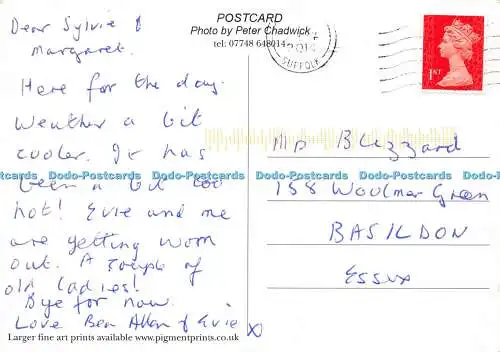 POSTCARD
Photo by Peter Chadwick
tel: 07748 648014
Dear Sylvie &
Margaret.
Here for the day.
Weather a bit
cooler. It has
been a bit too
hot! Evie and me
are getting worn
out. A couple of
old ladies!
Bye for now.
Love Ben Allan & Evie X
Larger fine art prints available www.pigmentprints.co.uk
SUFFOLK
1ST
Mr Blizzard
158 Woolmer Green
BASILDON
ESSEX
Dodo-Postcards Dodo-Postcards Dodo-Postcards Dodo-Postcards Dodo-Postcards Dodo-Postcards